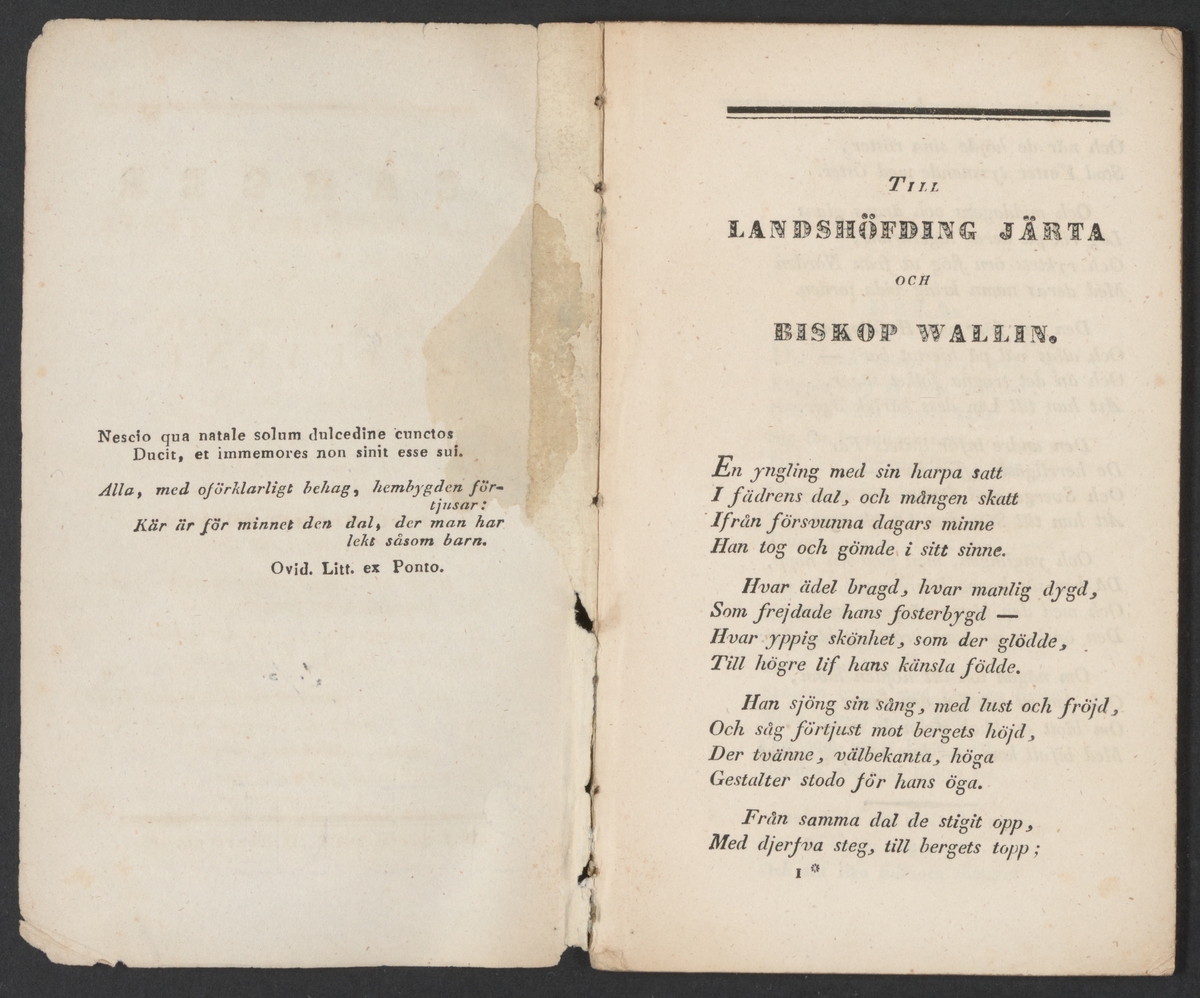 Nescio qua natale solum dulcedine cunctos
Ducit, et immemores non sinit esse sui.
Alla, med oförklarligt behag, hembygden för-
tjusar:
Kär är för minnet den dal, der man har
lekt såsom barn.
Ovid. Litt. ex Ponto.
TILL
LANDSHÖFDING JÄRTA
OCH
BISKOP WALLIN.
En yngling med sin harpa satt
I fädrens dal, och mången skatt
Ifrån försvunna dagars minne
Han tog och gömde i sitt sinne.
Hvar ädel bragd, hvar manlig dygd,
Som frejdade hans fosterbygd —
Hvar yppig skönhet, som der glödde,
Till högre lif hans känsla födde.
Han sjöng sin sång, med lust och fröjd,
Och såg förtjust mot bergets höjd,
Der tvänne, välbekanta, höga
Gestalter stodo för hans öga.
Från samma dal de stigit opp,
Med djerfva steg, till bergets topp;
1 *